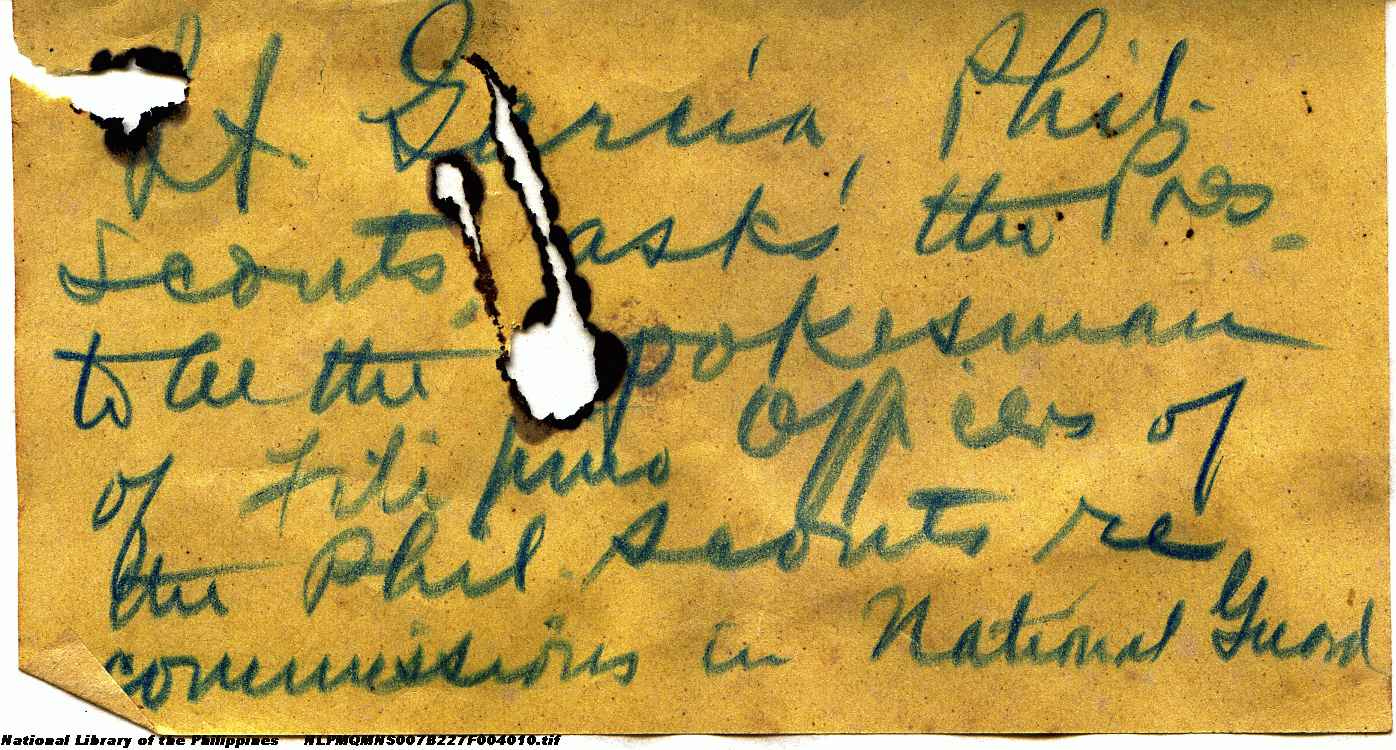 Lt. Garcia, Phil.
Scouts, asks the Pres.
to be the spokesman
of Filipino officers of
the Phil. Scouts re
commissions in National Guard
National Library of the Philippines NLPMQMNS007B227F004010.tif